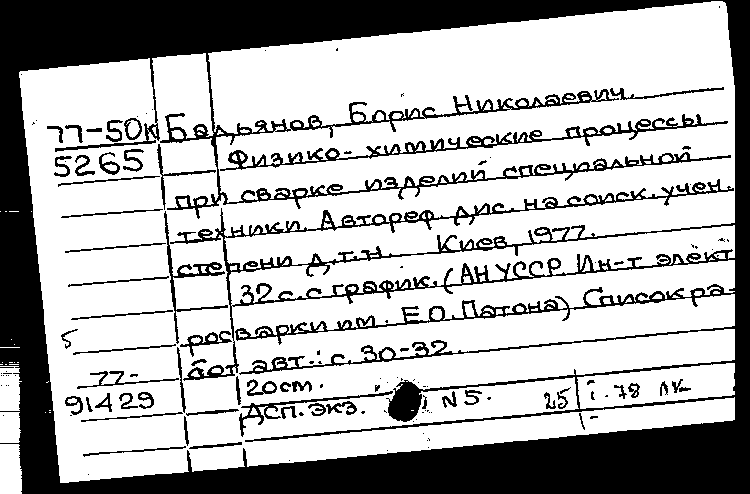 77-50к Бадьянов, Борис Николаевич.
5265 Физико-химические процессы
при сварке изделий специальной
техники. Автореф. дис. на соиск. учен.
степени д.т.н. Киев, 1977.
32 с. с график. (АН УССР Ин-т элект
росварки им. Е.О. Патона) Список ра-
5
бот авт.: с. 30-32.
77-
91429
20 см.
ДСП. экз. N 5. 25 i. 78 ЛК